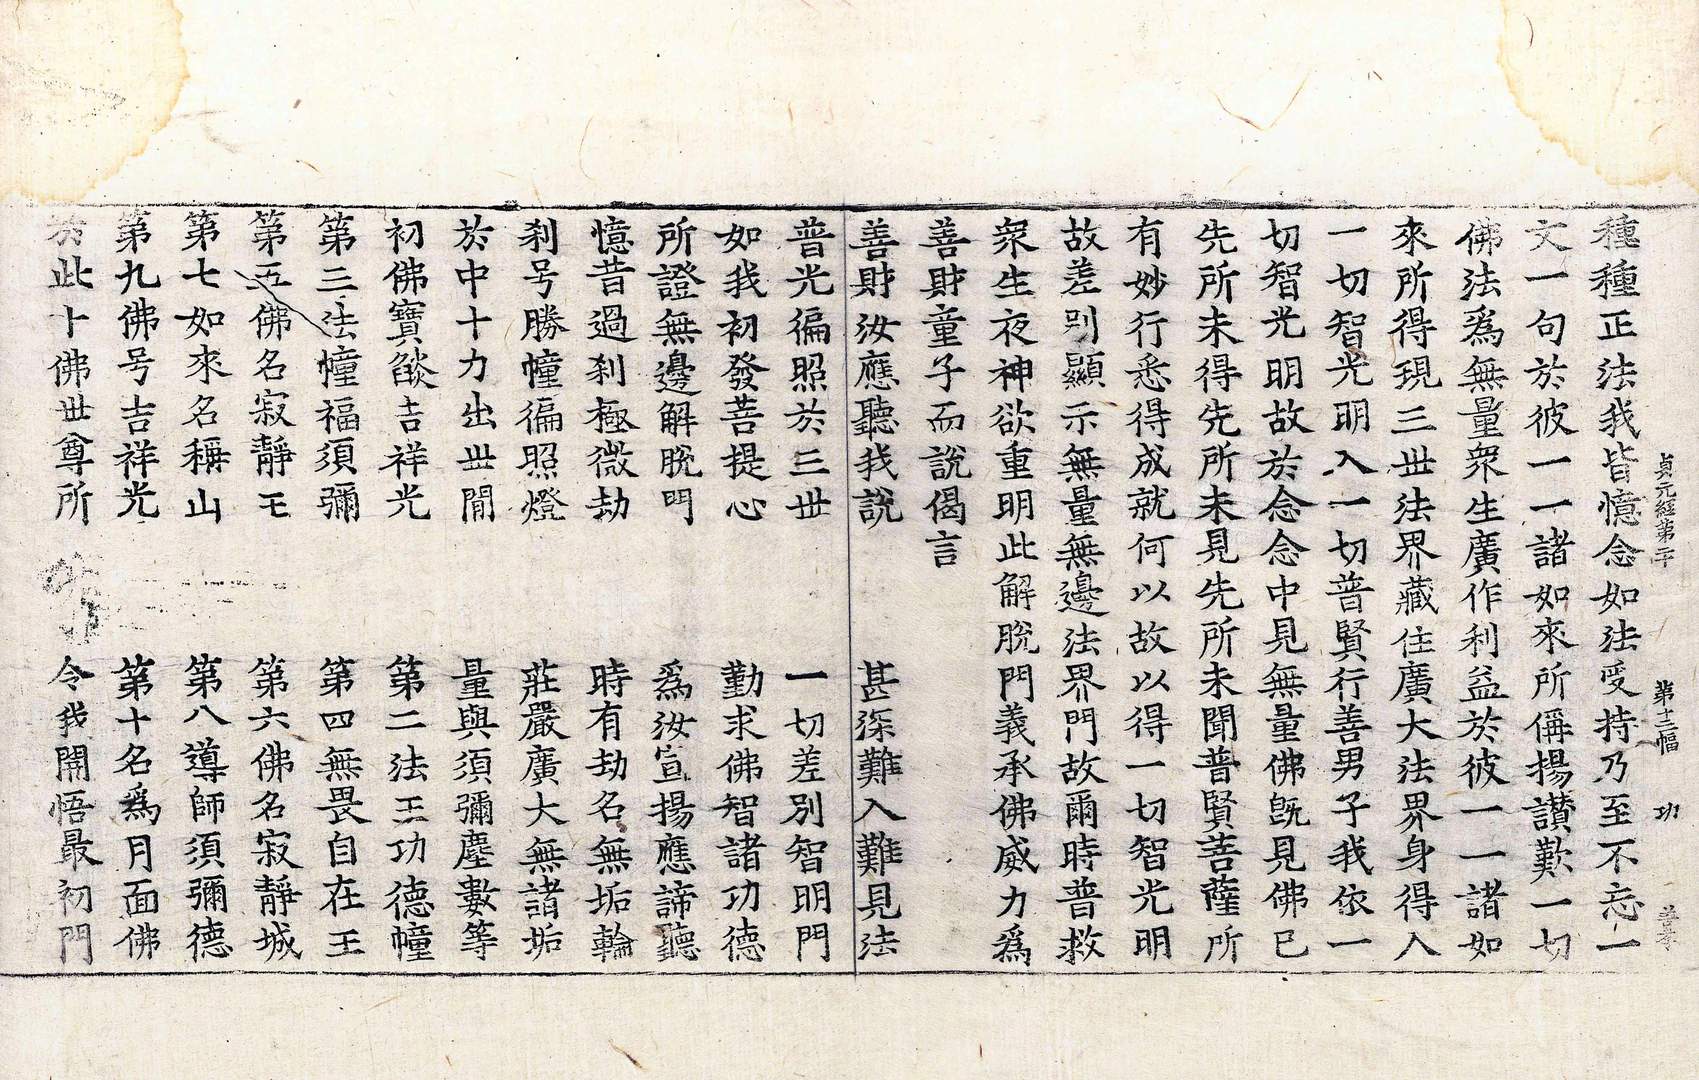 貞元經第二十 第十二幅 功 善本
種種正法我皆憶念如法受持乃至不忘一
文一句於彼一一諸如來所偁揚讚歎一切
佛法爲無量衆生廣作利益於彼一一諸如
來所得現三世法界藏住廣大法界身得入
一切智光明入一切普賢行善男子我依一
切智光明故於念念中見無量佛旣見佛已
先所未得先所未見先所未聞普賢菩薩所
有妙行悉得成就何以故以得一切智光明
故差別顯示無量無邊法界門故爾時普救
衆生夜神欲重明此解脫門義承佛威力爲
善財童子而說偈言
善財汝應聽我說 甚深難入難見法
普光徧照於三世 一切差別智明門
如我初發菩提心 勤求佛智諸功德
所證無邊解脫門 爲汝宣揚應諦聽
憶昔過刹極微劫 時有劫名無垢輪
刹号勝幢徧照燈 莊嚴廣大無諸垢
於中十力出世閒 量與須彌塵數等
初佛寶燄吉祥光 第二法王功德幢
第三法幢福須彌 第四無畏自在王
第五佛名寂靜王 第六佛名寂靜城
第七如來名稱山 第八導師須彌德
第九佛号吉祥光 第十名爲月面佛
於此十佛世尊所 令我開悟最初門